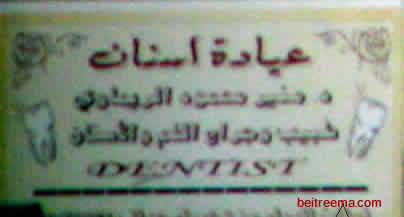 عيادة اسنان
د. منير محمود الريماوي
طبيب وجراح الفم والأسنان
DENTIST
beitreema.com